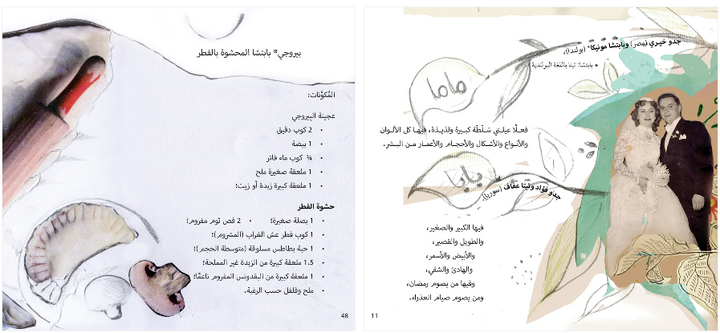 بيروجي* بابتشا المحشوة بالفطر
المُكوِّنات:
عجينة البيروجي
• 2 كوب دقيق
• 1 بيضة
• ¾ كوب ماء فاتر
• 1 ملعقة صغيرة ملح
• 1 ملعقة كبيرة زبدة أو زيت؛
حشوة الفطر
• 1 بصلة صغيرة؛ • 2 فص ثوم مفروم؛
• 1 كوب فطر عش الغراب (المشروم)؛
• 1 حبة بطاطس مسلوقة (متوسطة الحجم)؛
• 1.5 ملعقة كبيرة من الزبدة غير المملحة؛
• 1 ملعقة كبيرة من البقدونس المفروم ناعمًا؛
• ملح وفلفل حسب الرغبة.
48
جدو خيري (مصر) وبابتشا مونيكا* (بولندا)،
* بابتشا: تيتا باللغة البولندية
ماما
فعلًا عيلتي سَلَطة كبيرة ولذيذة، فيها كل الألوان
والأنواع والأشكال والأحجام والأعمار من البشر.
بابا
جدو فؤاد وتيتا عفاف (سوريا)،
فيها الكبير والصغير،
والطويل والقصير،
والأبيض والأسمر،
والهادئ والشقي،
وفيها من يصوم رمضان،
ومن يصوم صيام العذراء.
11